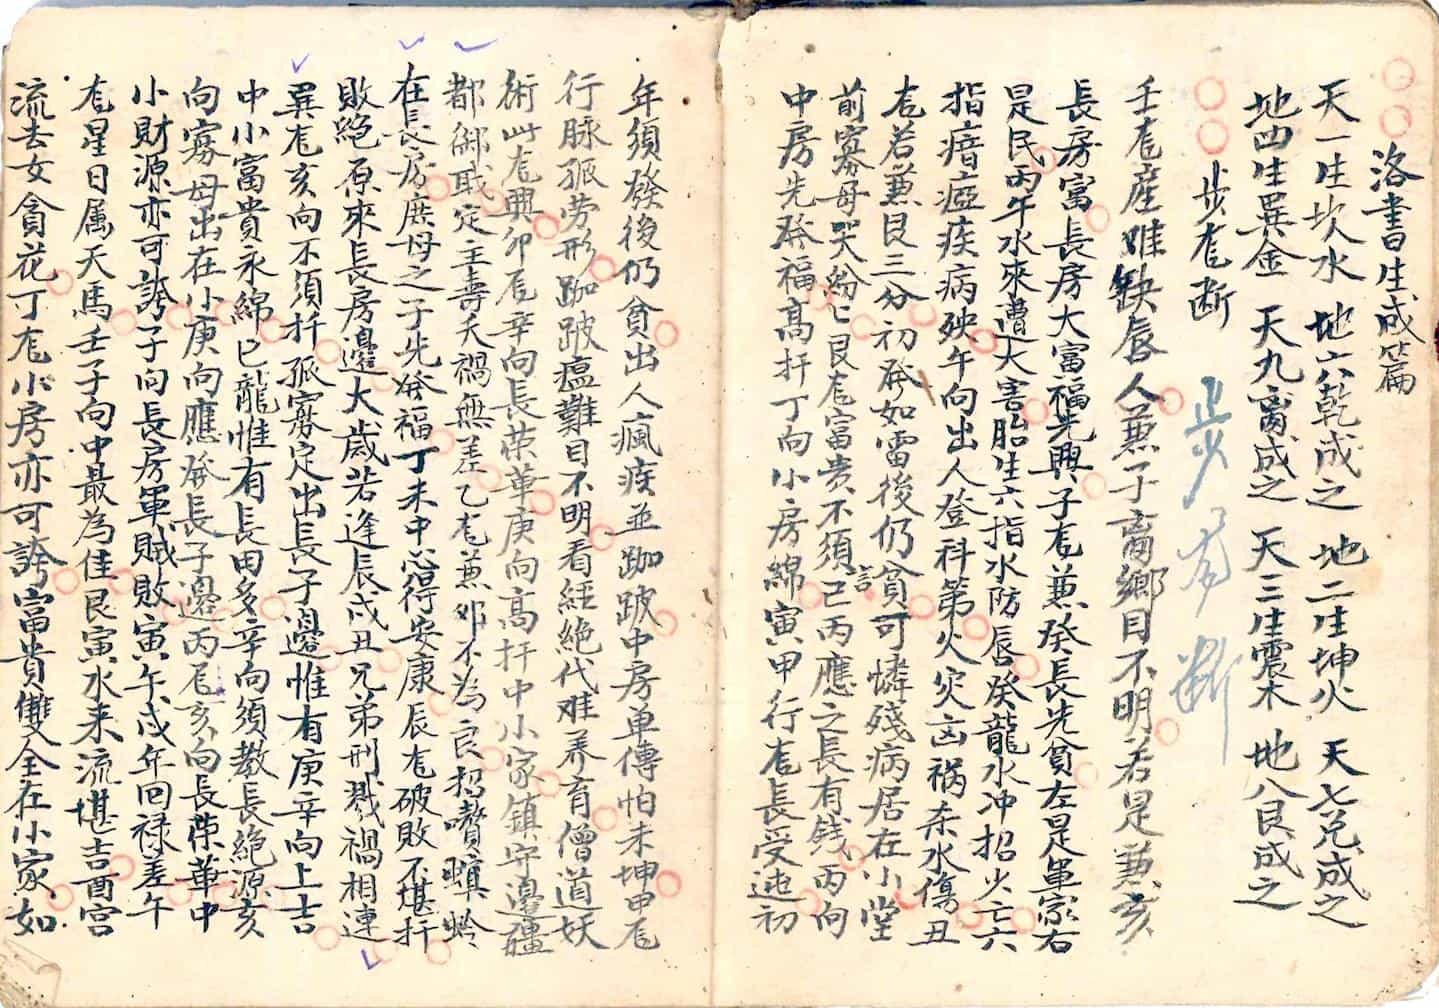 洛書生成篇
天一生坎水 地六乾成之 地二生坤火 天七兌成之
地四生巽金 天九离成之 天三生震木 地八艮成之
步龙断
步龙断
壬龙産难缺唇人兼子离鄉目不明若是兼亥
長房富長房大富福先興子龙兼癸長先貧左是軍家右
是民丙午水來遭大害胎生六指水防辰癸龍水冲招火亡六
指瘖瘂疾病殃午向出人登科第火灾凶祸杀水傷丑
龙若兼艮三分初發如雷後仍貧可憐殘病居在小堂
前寡母哭紛匕艮龙富贵不須言己丙應之長有錢丙向
中房先發福高扦丁向小房綿寅甲行龙長受迍初
年須發後仍貧出人瘋疾並跏跛中房单傳怕未坤申龙
行脉孤劳形跏跛瘟難目不明看経絶代难养育僧道妖
術此龙興卯龙辛向長荣華庚向高扦中小家鎮守邊疆
都師职定主壽夭禍無差乙龙兼邜不為良招贅螟蛉
在長房庶母之子先發福丁未中心得安康辰龙破敗不堪扦
敗絕原來長房邊大歲若逢辰戌丑兄弟刑戮禍相連
巽龙亥向不須扦孤寡定出長子邊惟有庚辛向上吉
中小富貴永綿匕巳龍惟有長田多辛向須教長絕源亥
向寡母出在小庚向應發長子邊丙龙亥向長荣華中
小財源亦可誇子向長房軍贼敗寅午戌年回禄差午
龙星日属天馬壬子向中最為佳艮寅水来流堪吉酉宫
流去女貪花丁龙小房亦可誇富貴雙全在小家如